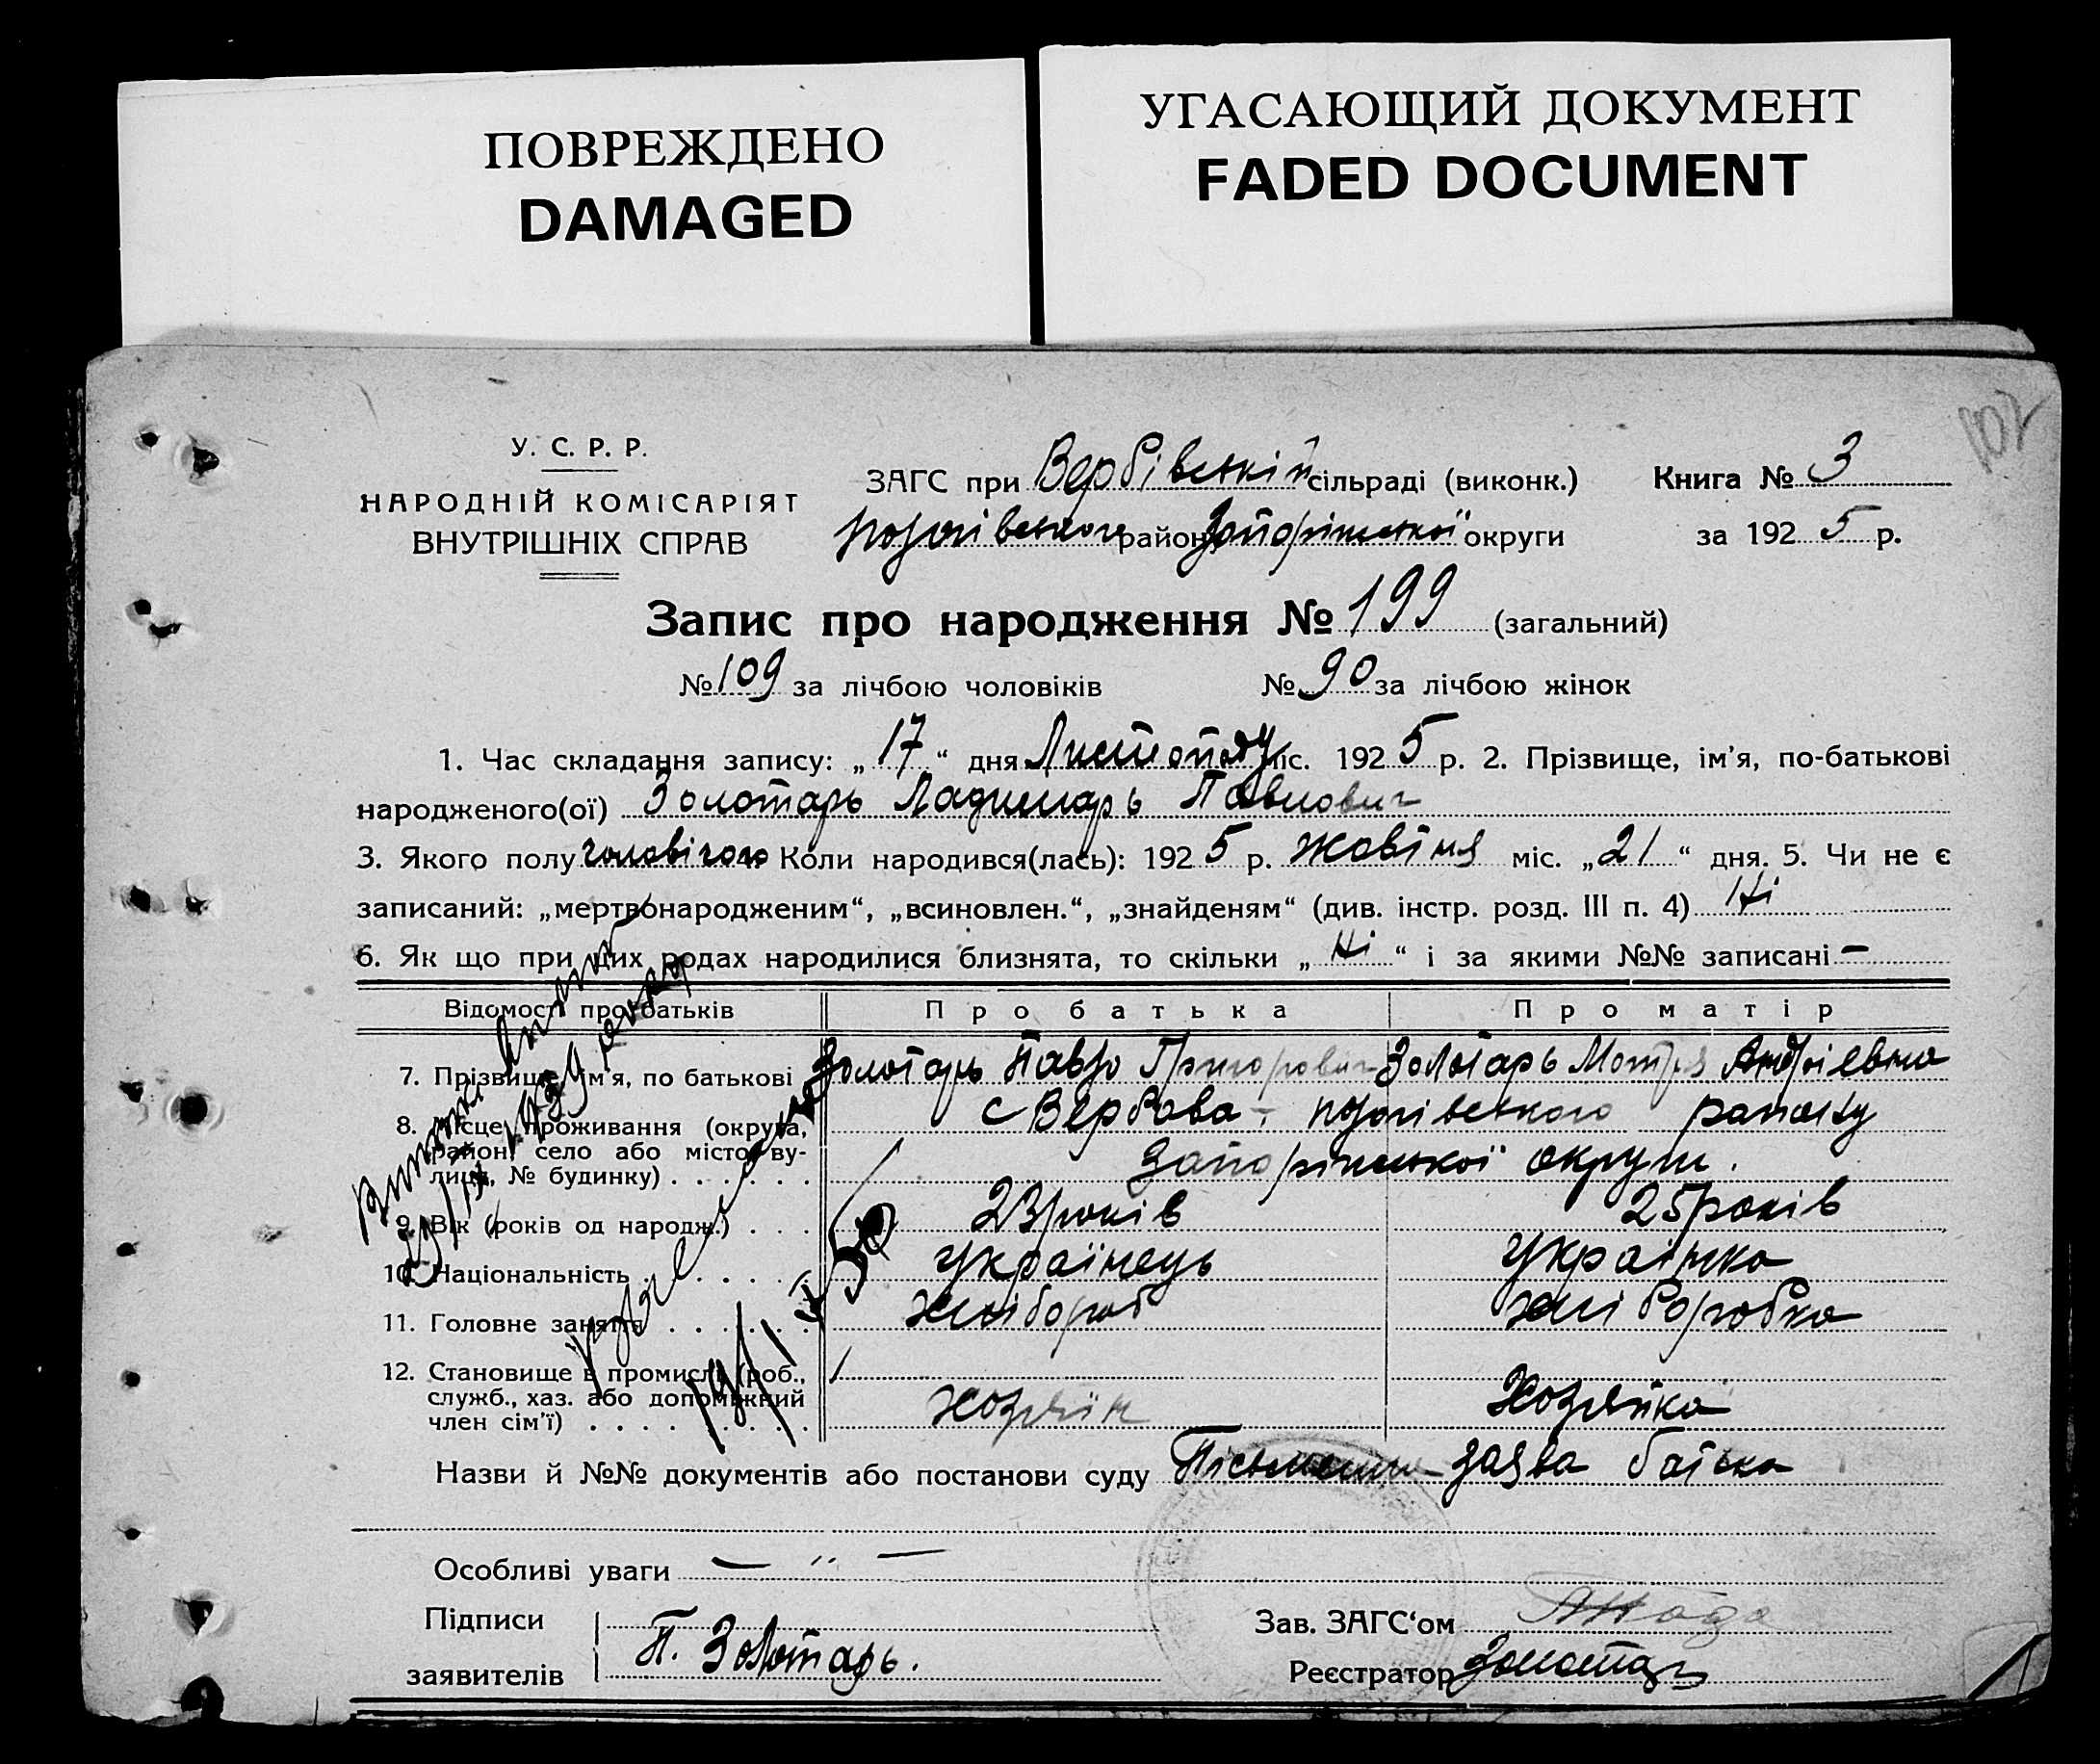 ПОВРЕЖДЕНО
DAMAGED
УГАСАЮЩИЙ ДОКУМЕНТ
FADED DOCUMENT
107
У. С. Р. Р.
НАРОДНІЙ КОМІСАРІЯТ
ВНУТРІШНІХ СПРАВ
ЗАГС при Вербівській сільраді (виконк.)
пологівського район Запоріжської округи
Книга № 3
за 1925 р.
Запис про народження № 199 (загальний)
№ 109 за лічбою чоловіків № 90 за лічбою жінок
1. Час складання запису: „17“ дня Листопаду міс. 1925 р. 2. Прізвище, ім'я, по-батькові
народженого(ої) Золотарь Ладимарь Павлович
3. Якого полу чоловічого Коли народився(лась): 1925 р. жовтня міс. „21“ дня. 5. Чи не є
записаний: „мертвонародженим“, „всиновлен.“, „знайденям“ (див. інстр. розд. III п. 4) Ні
6. Як що при цих родах народилися близнята, то скільки „Ні“ і за якими №№ записані —
Відомості про батьків Про батька Про матір
7. Прізвище, ім'я, по батькові Золотарь Павло Григорович Золотарь Мотря Андріевна
8. Місце проживання (округа, с Вербова - пологівського району
район, село або місто, ву-
лиця, № будинку) Запоріжської округи.
9. Вік (років од народж.) 23 років 25 років
10. Національність Українець Українка
11. Головне заняття хлібороб хліборобка
12. Становище в промислі (роб.,
служб., хаз. або допоміжний
член сім'ї) хозяїн Хозяйка
Назви й №№ документів або постанови суду Пісьменна заява батька
Особливі уваги — „ —
Підписи
заявителів П. Золотарь.
Зав. ЗАГС'ом
Реєстратор Золотарь